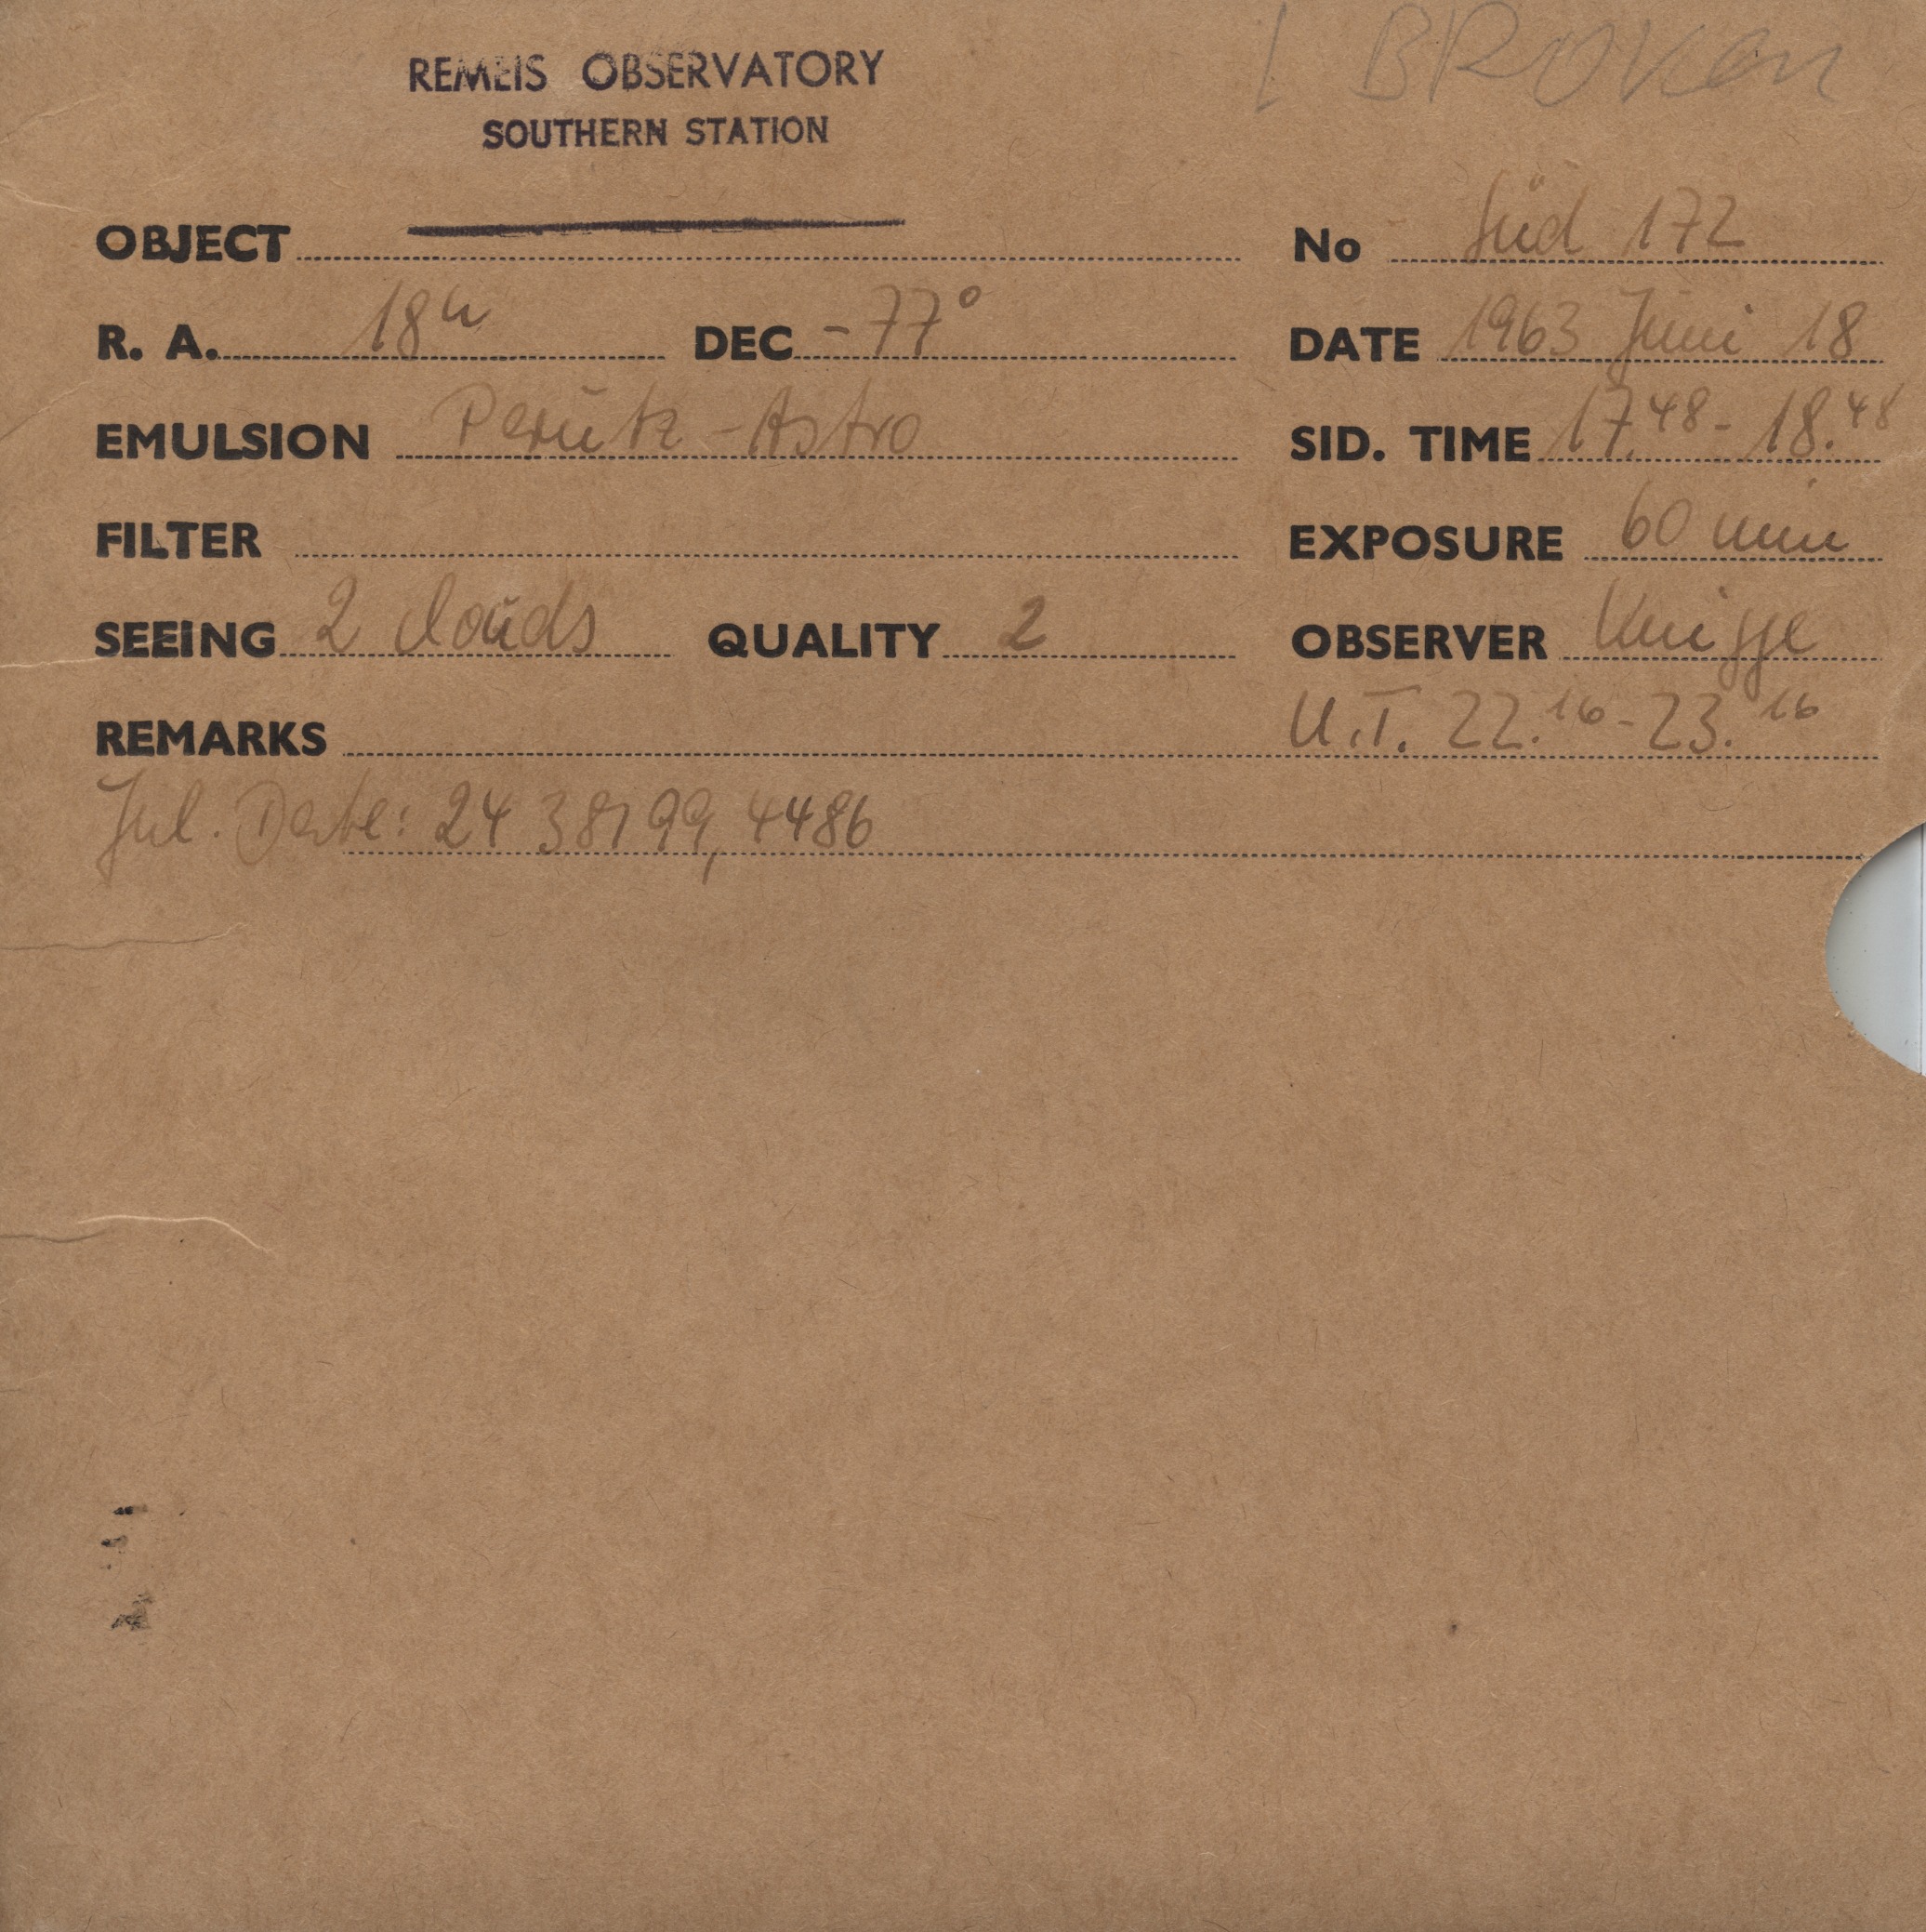 1 BROKEN
REMEIS OBSERVATORY
SOUTHERN STATION
OBJECT No Süd 172
R. A. 18h DEC -77° DATE 1963 Juni 18
EMULSION Perutz - Astro SID. TIME 17.48 - 18.48
FILTER EXPOSURE 60 min
SEEING 2 clouds QUALITY 2 OBSERVER Knigge
REMARKS U.T. 22.16 - 23.16
Jul. Date: 24 38199,4486